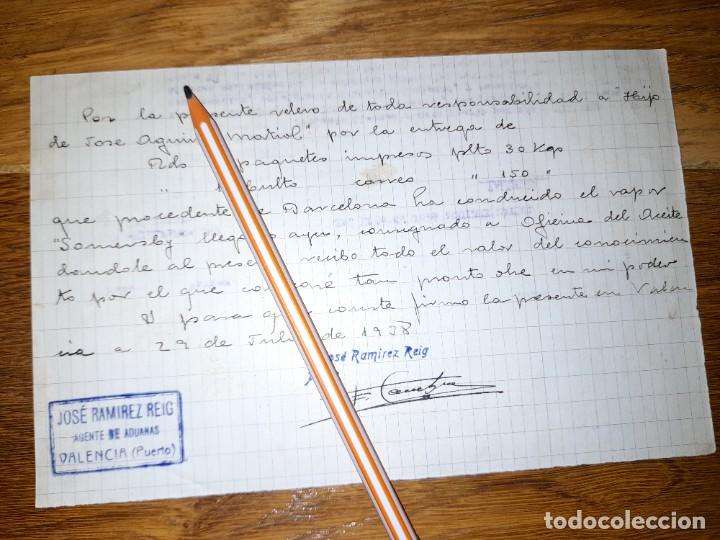 Por la presente relevo de toda responsabilidad a "Hijo
de Jose Aguirre Matiol" por la entrega de
Rdo paquetes impresos plto 30 Kgs
" 1 bulto correo " 150 "
que procedente de Barcelona ha conducido el vapor
"Somersby llegado a aqui, consignado a Oficina del Aceite
dandole al presente recibo todo el valor del conocimien
to por el que canjearé tan pronto obre en mi poder
Y para que conste firmo la presente en Valen
cia a 29 de Julio de 1938
José Ramirez Reig
JOSÉ RAMIREZ REIG
AGENTE DE ADUANAS
VALENCIA (Puerto)
todocoleccion.net